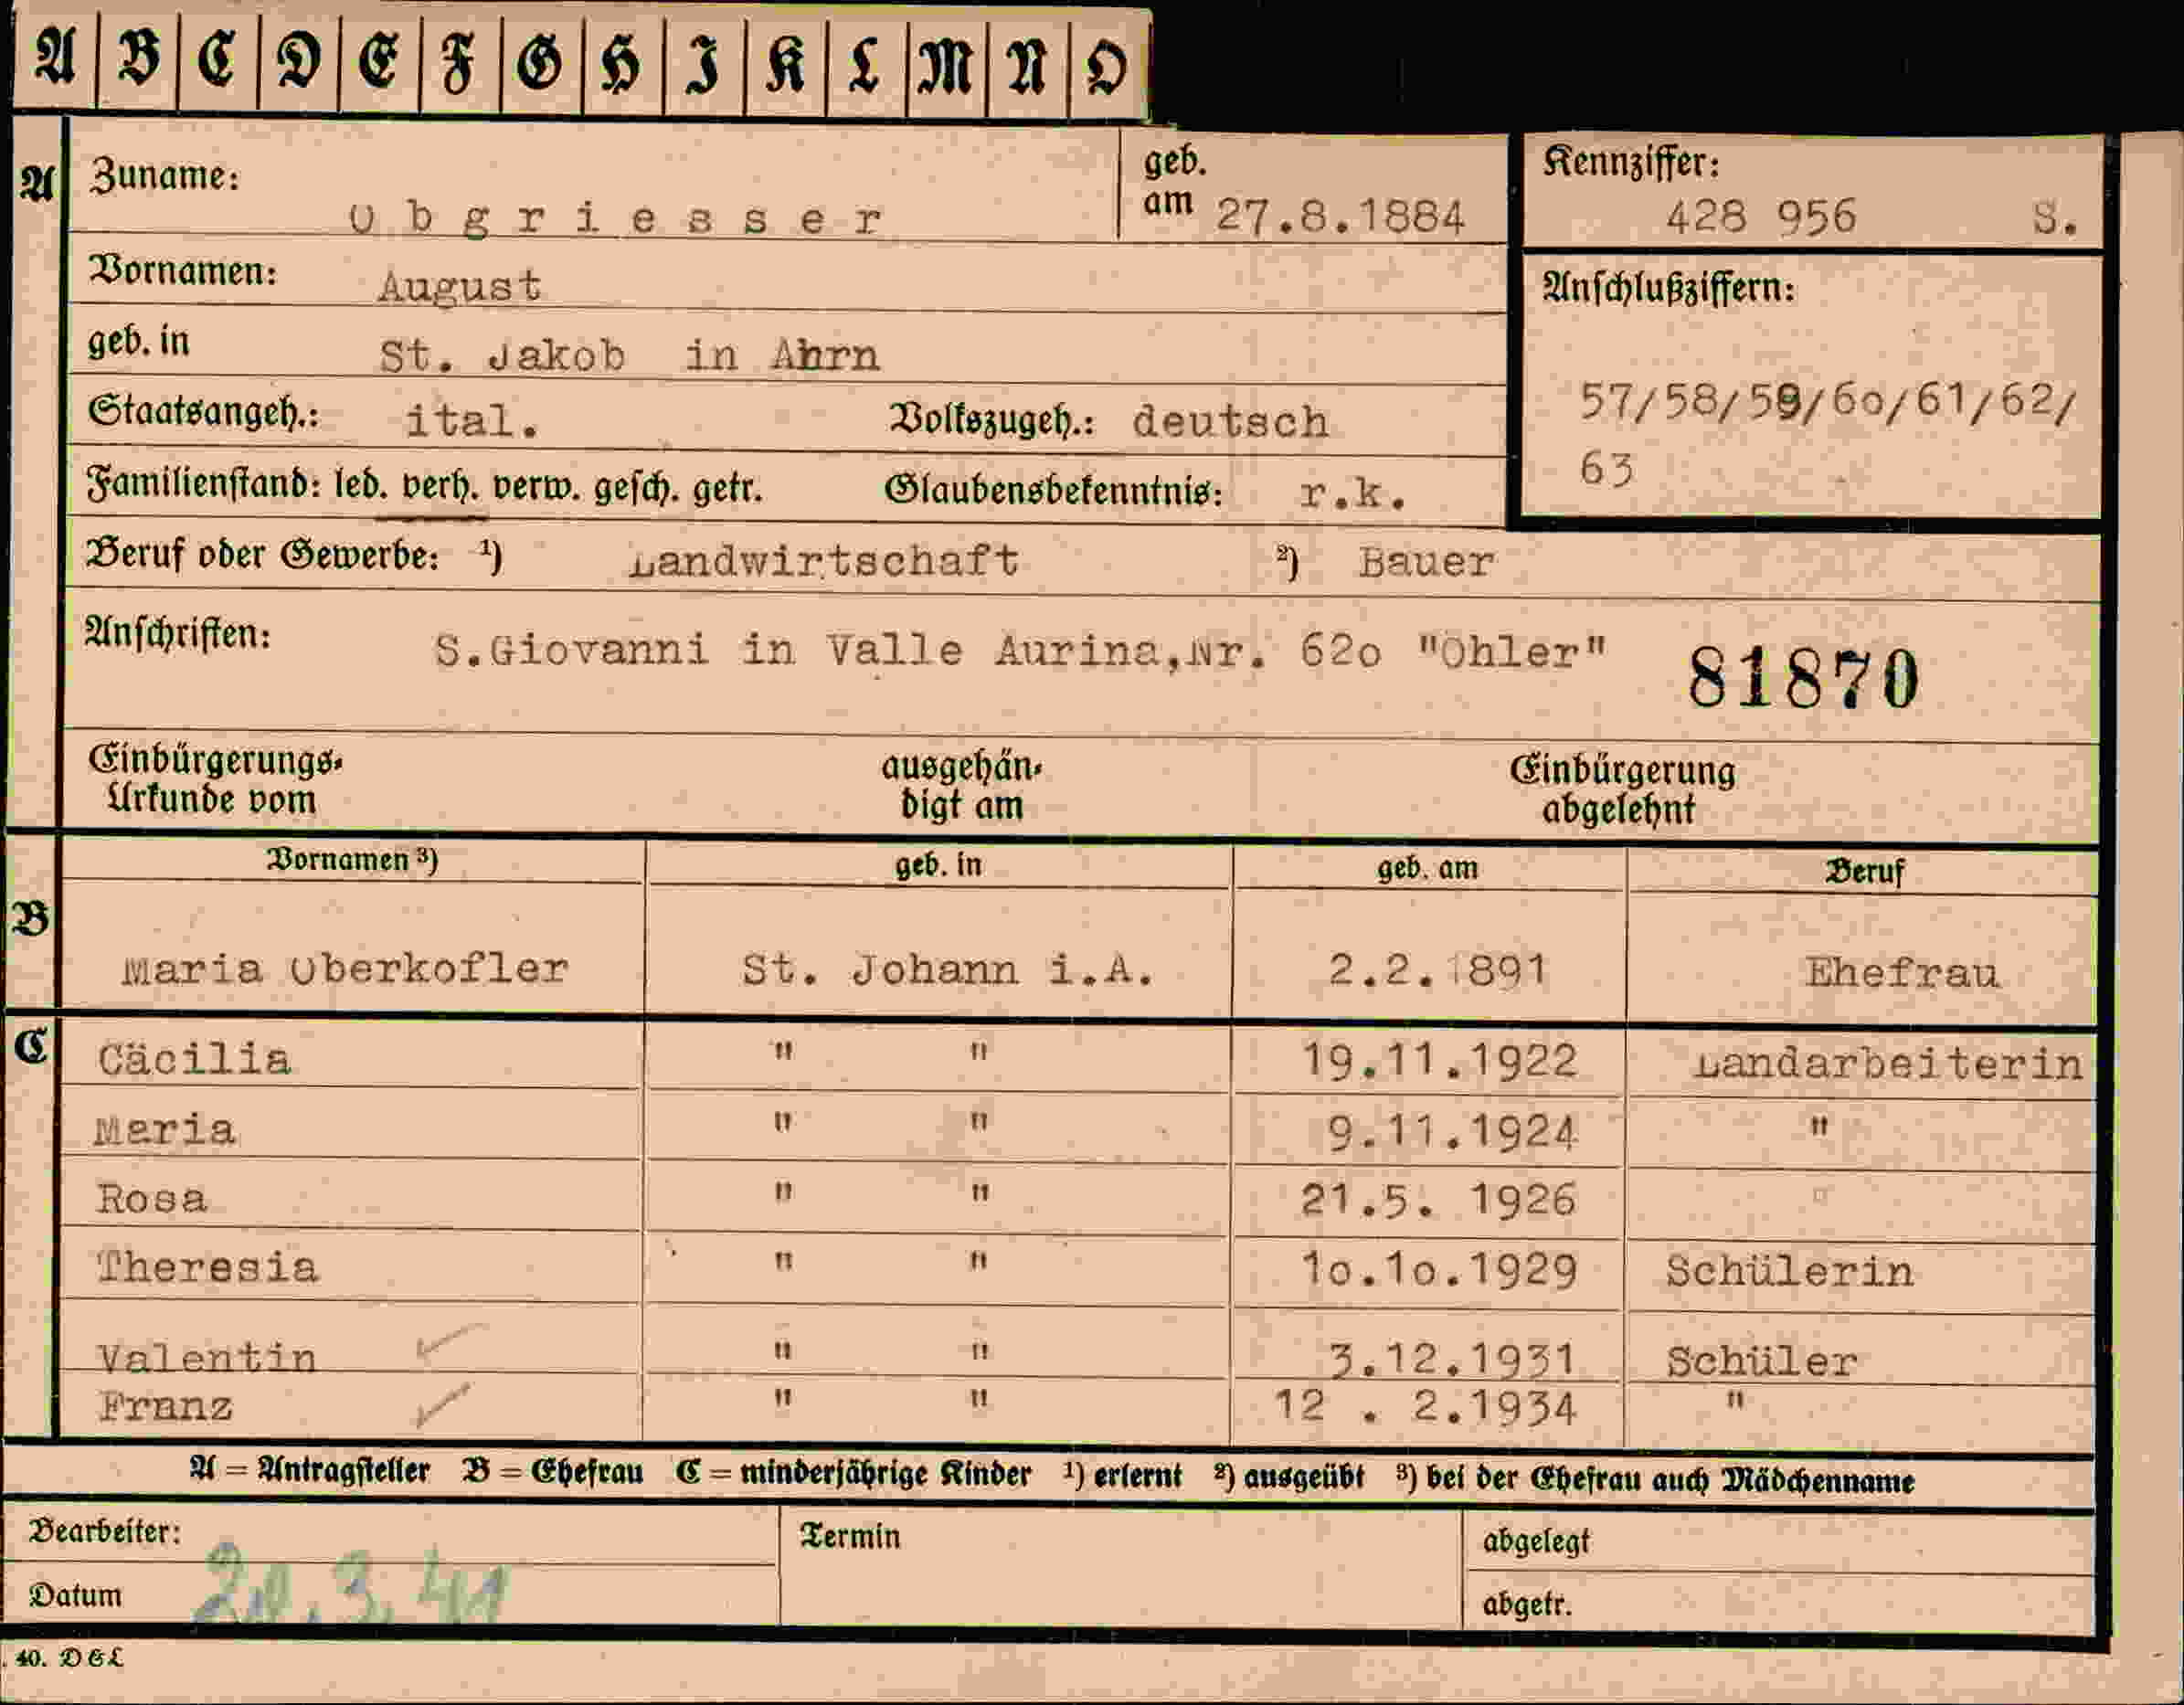 A B C D E F G H I K L M N O
A Zuname: Obgriesser geb. am 27.8.1884 Kennziffer: 428 956 S.
Vornamen: August Anschlußziffern:
geb. in St. Jakob in Ahrn
Staatsangeh.: ital. Volkszugeh.: deutsch 57/58/59/6o/61/62/
Familienstand: led. verh. verw. gesch. getr. Glaubensbekenntnis: r.k. 63
Beruf oder Gewerbe: ¹) Landwirtschaft ²) Bauer
Anschriften: S.Giovanni in Valle Aurina,Nr. 62o "Ohler" 81870
Einbürgerungs- ausgehän- Einbürgerung
Urkunde vom digt am abgelehnt
Vornamen ³) geb. in geb. am Beruf
B
Maria Oberkofler St. Johann i.A. 2.2.1891 Ehefrau
C Cäcilia " " 19.11.1922 Landarbeiterin
Maria " " 9.11.1924 "
Rosa " " 21.5. 1926 "
Theresia " " 1o.1o.1929 Schülerin
Valentin " " 3.12.1931 Schüler
Franz " " 12 . 2.1934 "
A = Antragsteller B = Ehefrau C = minderjährige Kinder ¹) erlernt ²) ausgeübt ³) bei der Ehefrau auch Mädchenname
Bearbeiter: Termin abgelegt
Datum 20.3.41 abgetr.
40. DGL